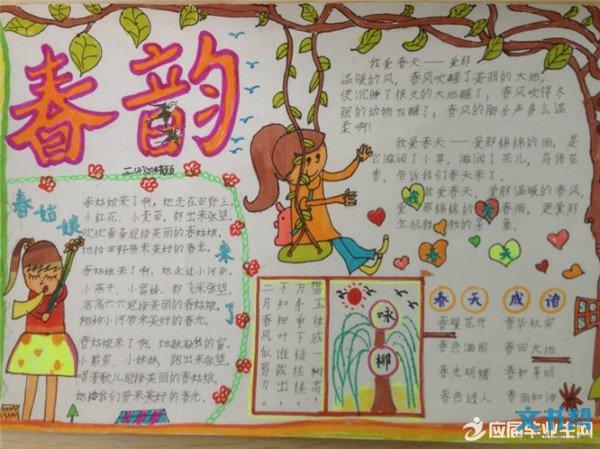 春韵
春姑娘来了
春姑娘来了啊,她走在田野上。
小红花,小麦苗,都出来张望。
欢欢喜喜迎接美丽的春姑娘,
她给田野带来美好的春光。
春姑娘来了啊,她走过小河旁。
小燕子,小蜜蜂,都飞来张望。
高高兴兴迎接美丽的春姑娘,
她给小河带来美好的春光。
小弟弟,小妹妹,跑出来张望。
迎接美丽的春姑娘,
她给我们带来美好的春光。
我爱春天——爱那
温暖的风,春风吹醒了美丽的大地,
使沉睡了很久的大地醒了;春风吹得冬
眠的动物也醒了;春风的脚步声多么温
柔啊!
我爱春天——爱那绵绵的雨,是
它滋润了小草,滋润了花儿,鸟语花
香,告诉我们春天来了。
我爱春天,爱那温暖的春风,
爱那绵绵的春雨,更爱那
生机勃勃的景象。
我爱春天
咏柳
碧玉妆成一树高
万条垂下绿丝绦
不知细叶谁裁出
二月春风似剪刀
春天成语
春暖花开 春华秋实
春色满园 春回大地
春光明媚 春和景明
春色迷人 春雨如油
应届毕业生网
文书帮